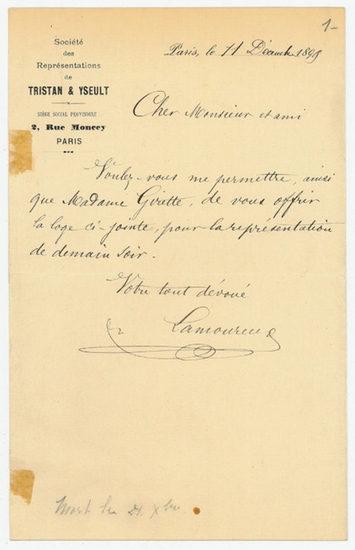 1-
Société
des
Représentations
de
TRISTAN & YSEULT
SIÈGE SOCIAL PROVISOIRE
2, Rue Moncey
PARIS
Paris, le 11 Décemb 1899
Cher Monsieur et ami
Voulez-vous me permettre, ainsi
que Madame Griette, de vous offrir
la loge ci-jointe, pour la représentation
de demain soir.
Votre tout dévoué
Lamoureux
Mort le 21 Xbre.